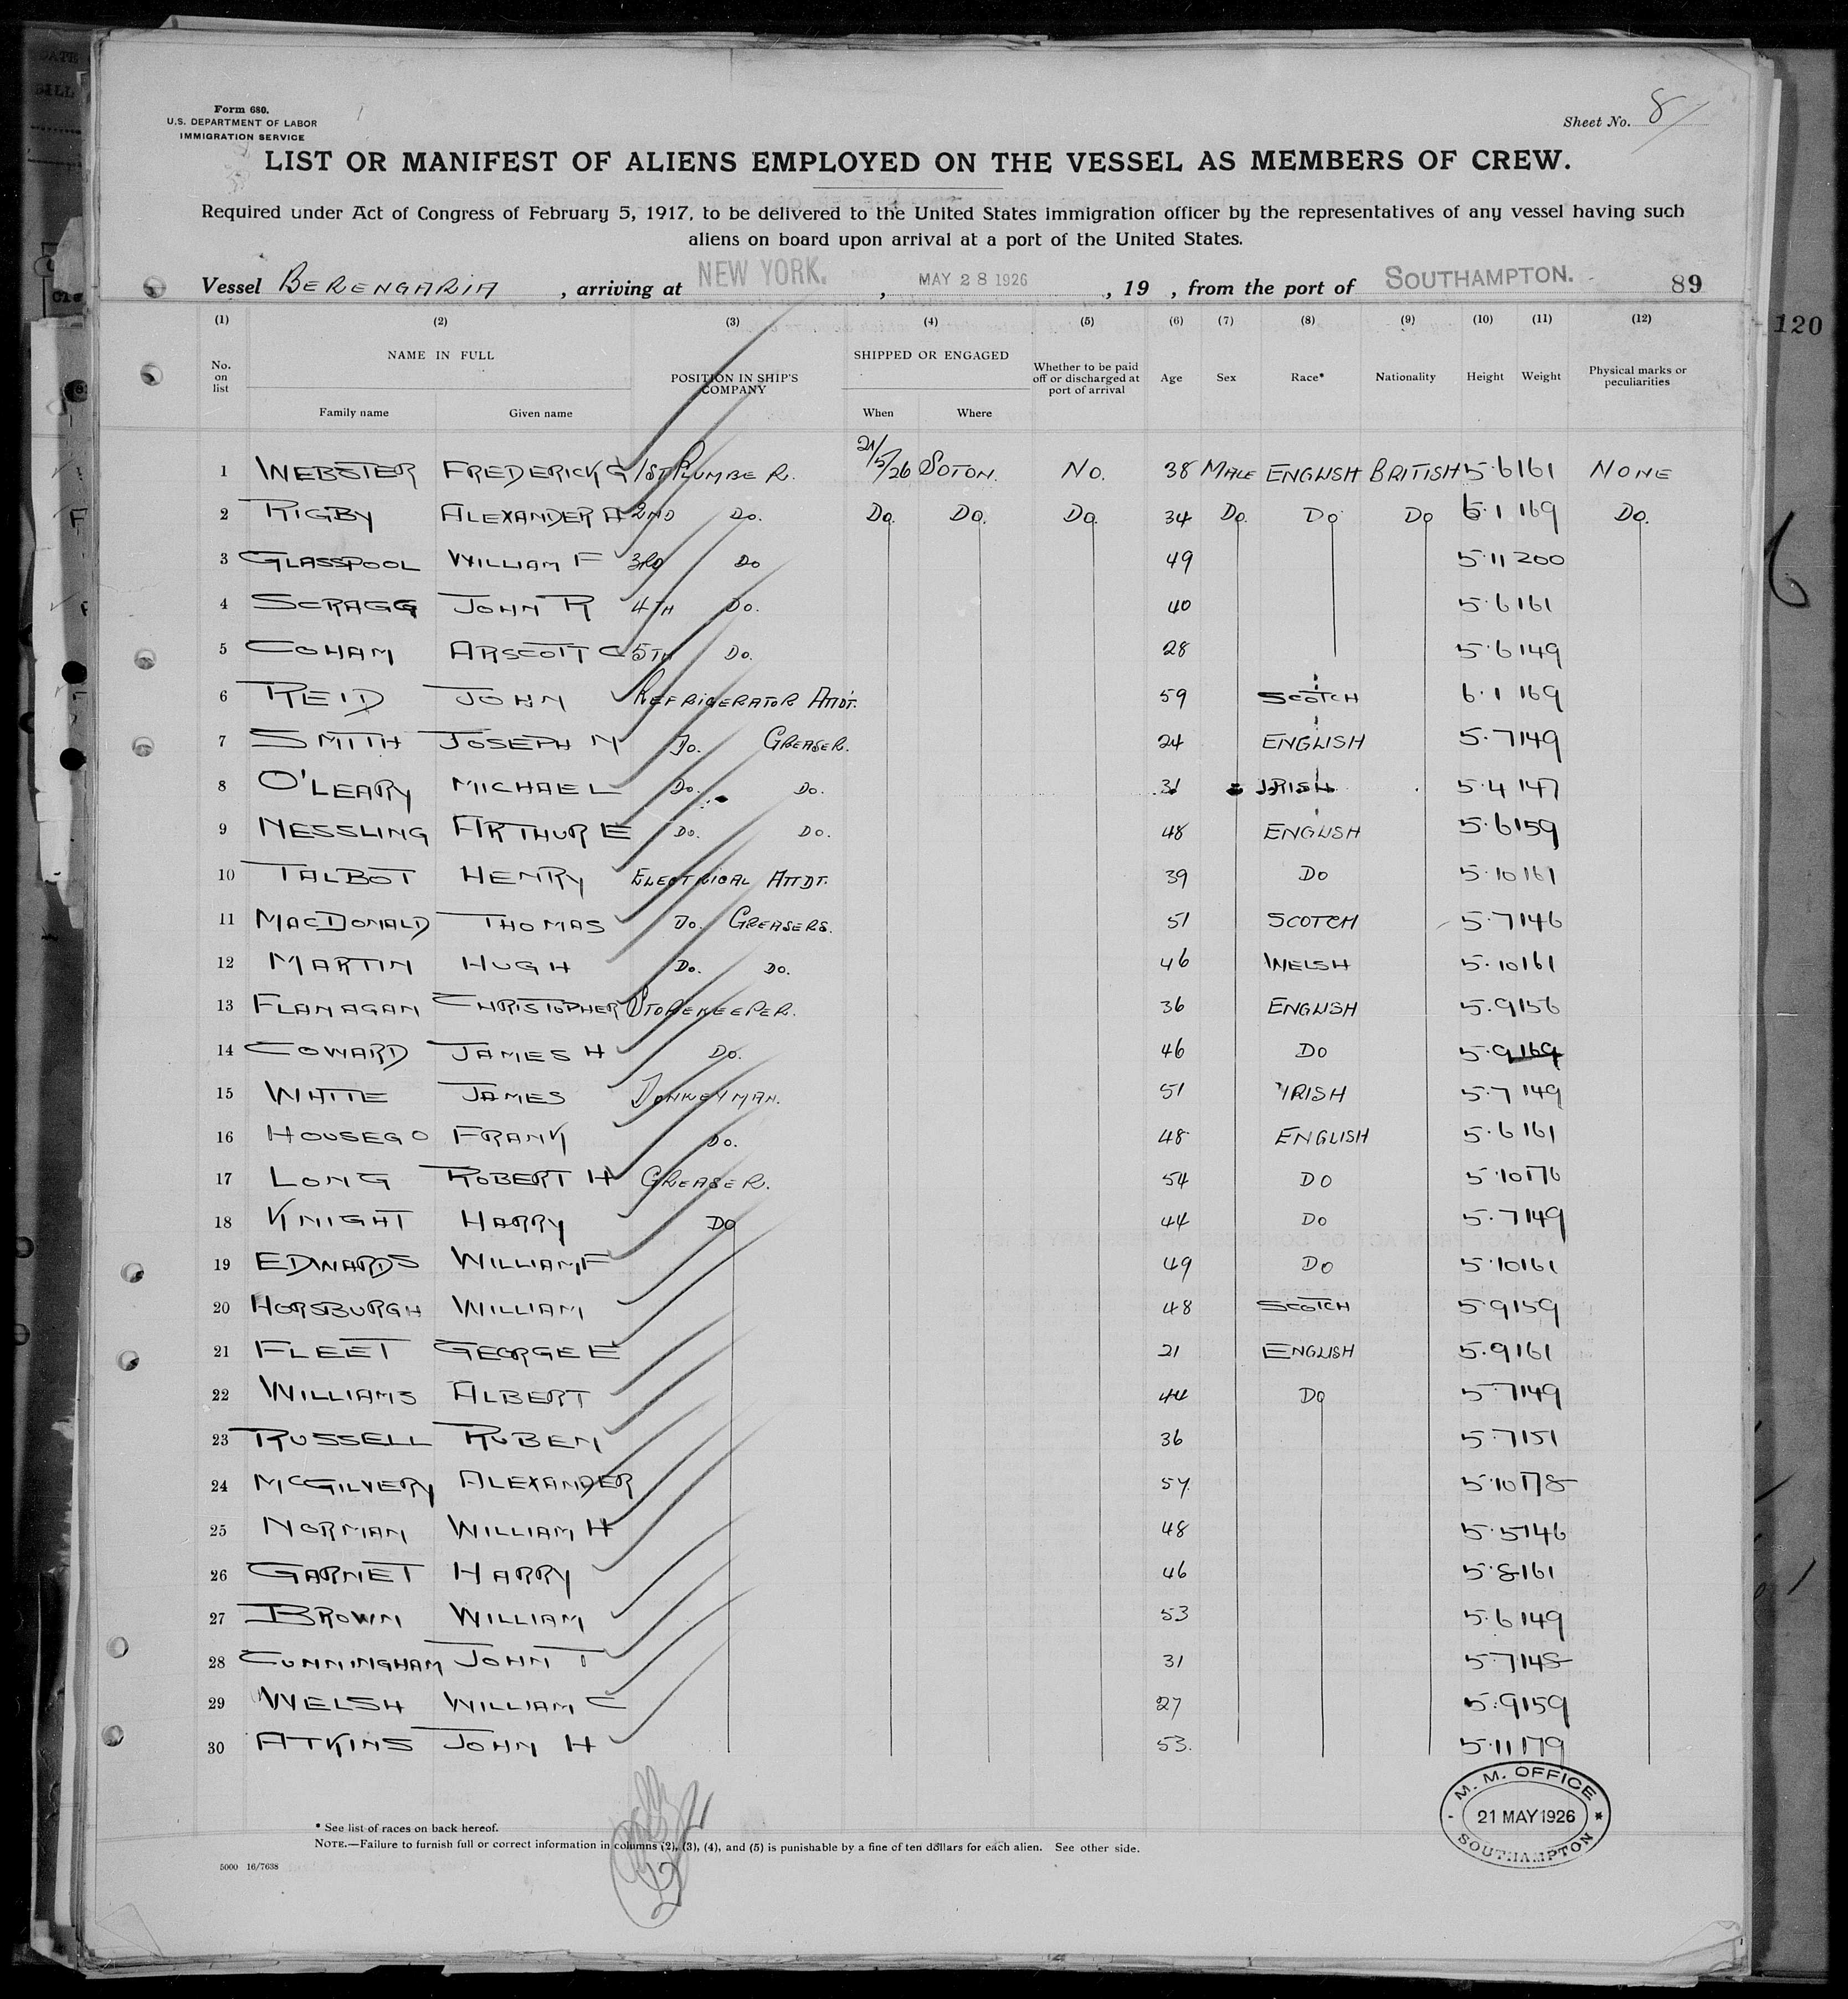 Form 680.
U.S. DEPARTMENT OF LABOR
IMMIGRATION SERVICE
Sheet No. 8
LIST OR MANIFEST OF ALIENS EMPLOYED ON THE VESSEL AS MEMBERS OF CREW.
Required under Act of Congress of February 5, 1917, to be delivered to the United States immigration officer by the representatives of any vessel having such
aliens on board upon arrival at a port of the United States.
Vessel BERENGARIA, arriving at NEW YORK., MAY 28 1926, 19 , from the port of SOUTHAMPTON. 89
120
(1) (2) (3) (4) (5) (6) (7) (8) (9) (10) (11) (12)
No. on list NAME IN FULL POSITION IN SHIP'S COMPANY SHIPPED OR ENGAGED Whether to be paid off or discharged at port of arrival Age Sex Race* Nationality Height Weight Physical marks or peculiarities
Family name Given name When Where
1 WEBSTER FREDERICK G 1ST PLUMBER. 21/5/26 SOTON. NO. 38 MALE ENGLISH BRITISH 5.6 161 NONE
2 RIGBY ALEXANDER A 2ND DO. DO. DO. DO. 34 DO. DO DO 6.1 169 DO.
3 GLASSPOOL WILLIAM F 3RD DO 49 5.11 200
4 SCRAGG JOHN R 4TH DO. 40 5.6 161
5 COHAM ARSCOTT C 5TH DO. 28 5.6 149
6 REID JOHN REFRIGERATOR ATTDT. 59 SCOTCH 6.1 169
7 SMITH JOSEPH M DO. GREASER. 24 ENGLISH 5.7 149
8 O'LEARY MICHAEL DO. DO. 31 IRISH 5.4 147
9 NESSLING ARTHUR E DO. DO. 48 ENGLISH 5.6 159
10 TALBOT HENRY ELECTRICAL ATTDT. 39 DO 5.10 161
11 MACDONALD THOMAS DO. GREASERS. 51 SCOTCH 5.7 146
12 MARTIN HUGH DO. DO. 46 WELSH 5.10 161
13 FLANAGAN CHRISTOPHER STOREKEEPER. 36 ENGLISH 5.9 156
14 COWARD JAMES H DO. 46 DO 5.9 169
15 WHITE JAMES DONKEYMAN. 51 IRISH 5.7 149
16 HOUSEGO FRANK DO. 48 ENGLISH 5.6 161
17 LONG ROBERT H GREASER. 54 DO 5.10 176
18 KNIGHT HARRY DO 44 DO 5.7 149
19 EDWARDS WILLIAM F 49 DO 5.10 161
20 HORSBURGH WILLIAM 48 SCOTCH 5.9 159
21 FLEET GEORGE E 21 ENGLISH 5.9 161
22 WILLIAMS ALBERT 44 DO 5.7 149
23 RUSSELL RUBEN 36 5.7 151
24 MCGILVERY ALEXANDER 54. 5.10 178
25 NORMAN WILLIAM H 48 5.5 146
26 GARNET HARRY 46 5.8 161
27 BROWN WILLIAM 53 5.6 149
28 CUNNINGHAM JOHN T 31 5.7 148
29 WELSH WILLIAM C 27 5.9 159
30 ATKINS JOHN H 53. 5.11 179
M. M. OFFICE
21 MAY 1926
SOUTHAMPTON
* See list of races on back hereof.
NOTE.—Failure to furnish full or correct information in columns (2), (3), (4), and (5) is punishable by a fine of ten dollars for each alien. See other side.
5000 16/7638